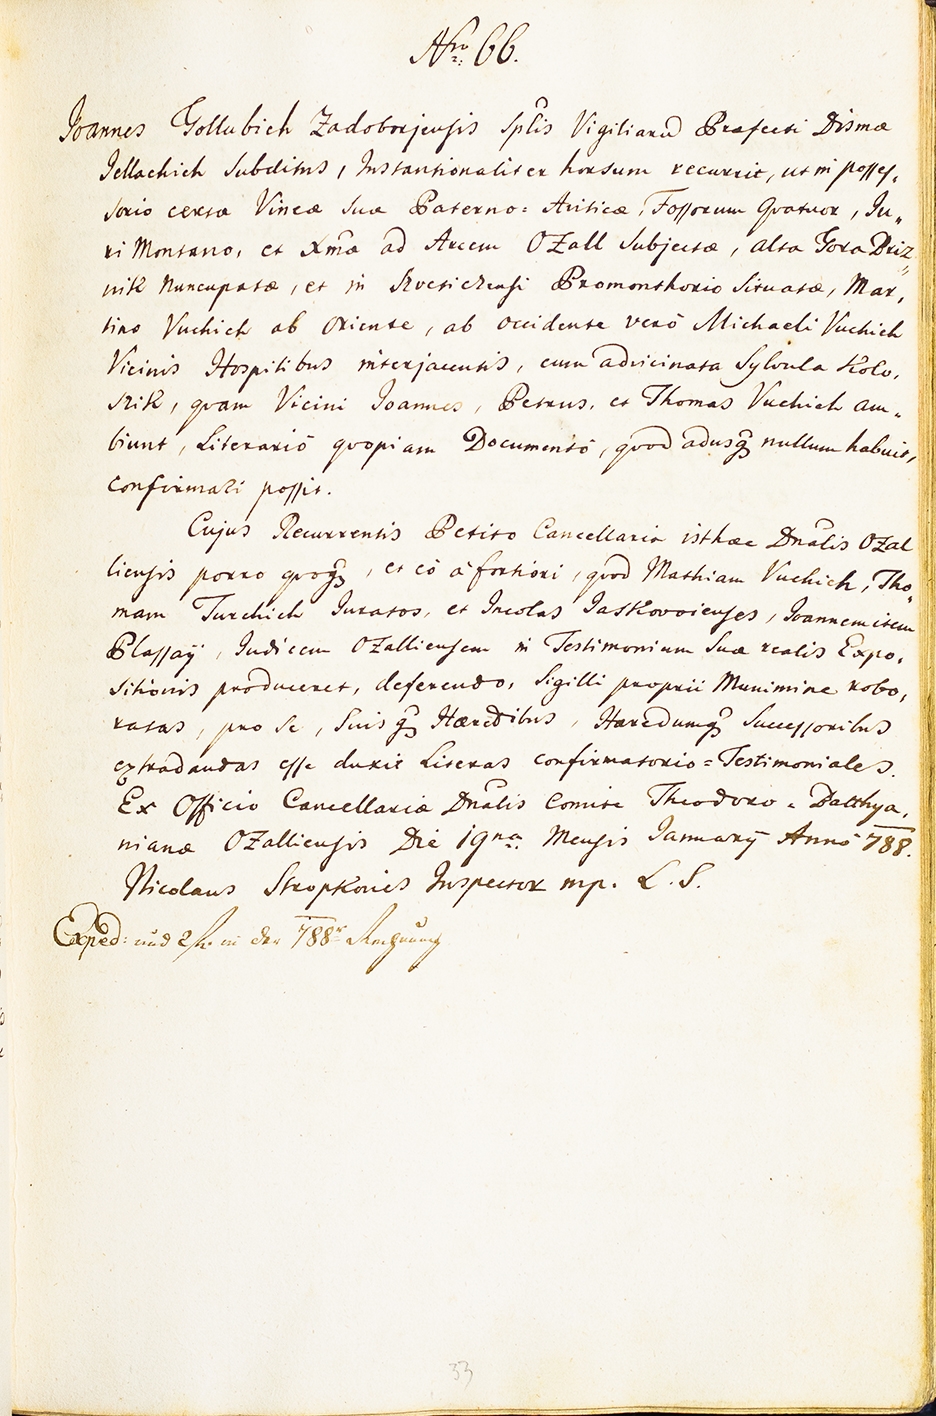 Nro 66.
Joannes Gollubich Zadoborjensis Splis Vigiliarũ Præfecti Dismæ
Jellachich Subditus, Instantionaliter horsum recurrit, ut in posses,
sorio certæ Vineæ Suæ Paterno= Aviticæ, Fossorum Qvatuor, Ju„
ri Montano, et Xmæ ad Arcem OZall Subjectæ, alta Gora Driz„
nik Nuncupatæ, et in Svetichensi Promonthorio Situatæ, Mar,
tino Vuchich ab Oriente, ab occidente verò Michaeli Vuchich
Vicinis Hospitibus interjacentis, cum advicinata Sylvula Kolo,
srik, qvam Vicini Joannes, Petrus, et Thomas Vuchich am„
biunt, Literariô qvopiam Documentô, qvod adusq3 nullum habuit,
confirmari possit.
Cujus Recurrentis Petito Cancellaria isthæc Dnalis OZal
liensis porro qvoq3, et eò à fortiori, qvod Mathiam Vuchich, Tho„
mam Turchich Juratos, et Incolas Jaskovoienses, Joannem item
Plassaÿ, Judicem OZalliensem in Testimonium Suæ realis Expo,
sitionis produceret, deferendo, Sigilli proprii Munimine robo,
ratas, pro Se, Suis q3 Hæredibus, Hæredumq3 Successoribus
extradandas esse duxit Literas confirmatorio=Testimoniales.
Ex Officio Cancellariæ Dnalis Comite Theodoro=Batthya,
nianæ OZalliensis Die 19na Mensis Januarÿ Annô 788.
Nicolaus Stropkovics Inspector mp. L. S.
Exped: und 2 fr. in der 788r Rechnung
33